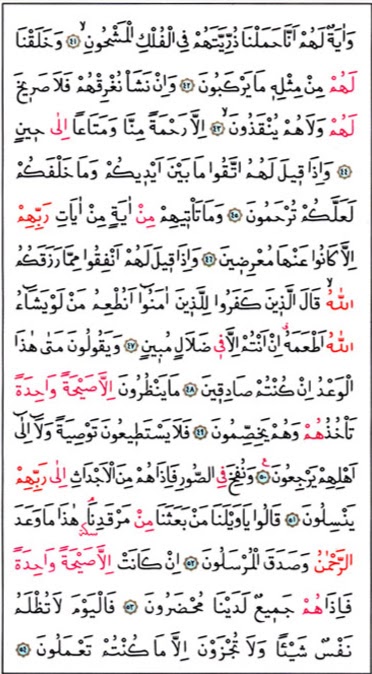 وَاٰيَةٌ لَهُمْ اَنَّا حَمَلْنَا ذُرِّيَّتَهُمْ فِي الْفُلْكِ الْمَشْحُونِۙ ﴿٤١﴾ وَخَلَقْنَا
لَهُمْ مِنْ مِثْلِه۪ مَا يَرْكَبُونَ ﴿٤٢﴾ وَاِنْ نَشَأْ نُغْرِقْهُمْ فَلَا صَر۪يخَ
لَهُمْ وَلَا هُمْ يُنْقَذُونَۙ ﴿٤٣﴾ اِلَّا رَحْمَةً مِنَّا وَمَتَاعاً اِلٰى ح۪ينٍ
﴿٤٤﴾ وَاِذَا ق۪يلَ لَهُمُ اتَّقُوا مَا بَيْنَ اَيْد۪يكُمْ وَمَا خَلْفَكُمْ
لَعَلَّكُمْ تُرْحَمُونَ ﴿٤٥﴾ وَمَا تَأْت۪يهِمْ مِنْ اٰيَةٍ مِنْ اٰيَاتِ رَبِّهِمْ
اِلَّا كَانُوا عَنْهَا مُعْرِض۪ينَ ﴿٤٦﴾ وَاِذَا ق۪يلَ لَهُمْ اَنْفِقُوا مِمَّا رَزَقَكُمُ
اللّٰهُۙ قَالَ الَّذ۪ينَ كَفَرُوا لِلَّذ۪ينَ اٰمَنُٓوا اَنُطْعِمُ مَنْ لَوْ يَشَٓاءُ
اللّٰهُ اَطْعَمَهُۗ اِنْ اَنْتُمْ اِلَّا ف۪ي ضَلَالٍ مُب۪ينٍ ﴿٤٧﴾ وَيَقُولُونَ مَتٰى هٰذَا
الْوَعْدُ اِنْ كُنْتُمْ صَادِق۪ينَ ﴿٤٨﴾ مَا يَنْظُرُونَ اِلَّا صَيْحَةً وَاحِدَةً
تَأْخُذُهُمْ وَهُمْ يَخِصِّمُونَ ﴿٤٩﴾ فَلَا يَسْتَط۪يعُونَ تَوْصِيَةً وَلَٓا اِلٰٓى
اَهْلِهِمْ يَرْجِعُونَ۟ ﴿٥٠﴾ وَنُفِخَ فِي الصُّورِ فَاِذَا هُمْ مِنَ الْاَجْدَاثِ اِلٰى رَبِّهِمْ
يَنْسِلُونَ ﴿٥١﴾ قَالُوا يَا وَيْلَنَا مَنْ بَعَثَنَا مِنْ مَرْقَدِنَاۢ هٰذَا مَا وَعَدَ
الرَّحْمٰنُ وَصَدَقَ الْمُرْسَلُونَ ﴿٥٢﴾ اِنْ كَانَتْ اِلَّا صَيْحَةً وَاحِدَةً
فَاِذَا هُمْ جَم۪يعٌ لَدَيْنَا مُحْضَرُونَ ﴿٥٣﴾ فَالْيَوْمَ لَا تُظْلَمُ
نَفْسٌ شَيْـٔاً وَلَا تُجْزَوْنَ اِلَّا مَا كُنْتُمْ تَعْمَلُونَ ﴿٥٤﴾